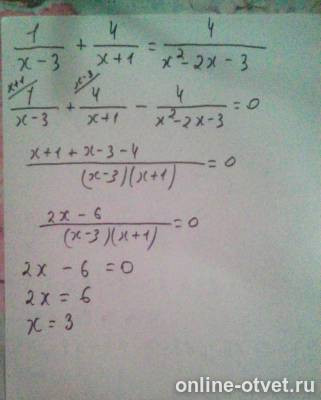 1/(x-3) + 4/(x+1) = 4/(x²-2x-3)
x+1 x-3
1/(x-3) + 4/(x+1) - 4/(x²-2x-3) = 0
(x+1+x-3-4)/((x-3)(x+1)) = 0
(2x-6)/((x-3)(x+1)) = 0
2x - 6 = 0
2x = 6
x = 3
online-otvet.ru